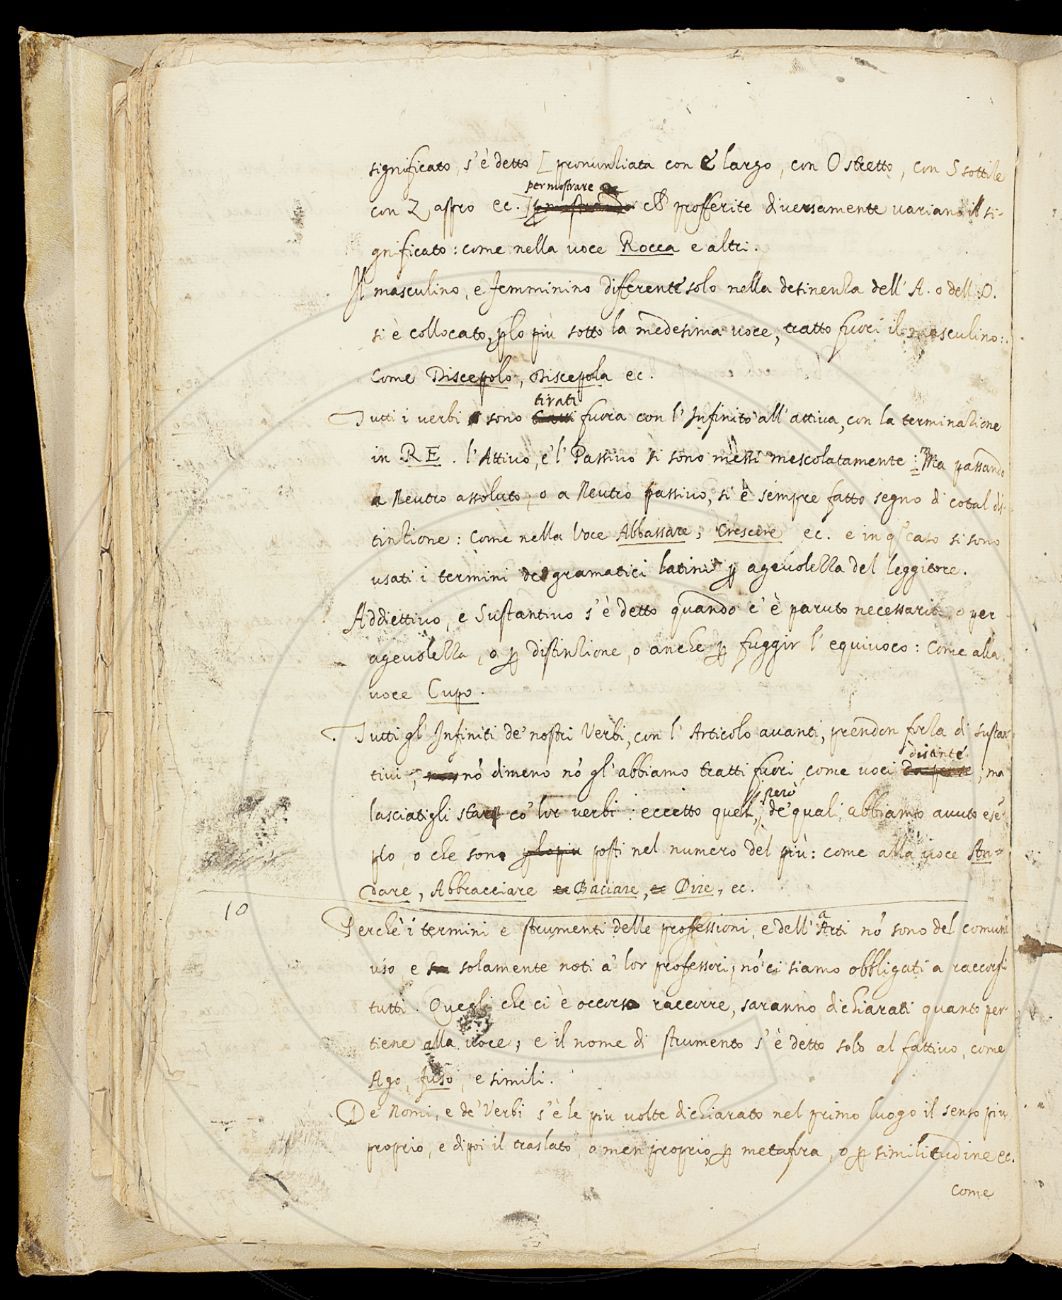 significato, s'è detto [pronunziata con è largo, con O stretto, con S sottile
per mostrare
con Z aspro ec. che profferite diversamente variano il si-
gnificato: come nella voce Rocca e altri.
Il masculino, e femminino differente solo nella desinenza dell'A. o dell'O.
si è collocato, plo più sotto la medesima voce, tratto fuori il masculino:
Come Discepolo, Discepola ec.
tirati
Tutti i verbi sono fuora con l'Infinito all'attiva, con la terminazione
in RE. l'Attivo, e l'Passivo si sono messi mescolatamente: Ma passando
a Neutro assoluto, o a Neutro passivo, si è sempre fatto segno di cotal dis-
tinzione: Come nella Voce Abbassare, Crescere ec. e in q̃to caso si sono
usati i termini de gramatici latini p agevolezza del leggitore.
Addiettivo, e Sustantivo s'è detto quando c'è paruto necessario, o per
agevolezza, o p distinzione, o anche p fuggir l'equivoco: Come alla
voce Cupo.
Tutti gl'Infiniti de' nostri Verbi, con l'Articolo avanti, prendon forza di sustan
disanté
tivi, nõ dimeno nõ gl'abbiamo tratti fuori come voci ma
però
lasciatigli star co' lor verbi: eccetto quelli, de' quali abbiamo avuto esẽ-
plo, o che sono posti nel numero del più: come alla voce An-
dare, Abbracciare Baciare, Dire, ec.
10
Perchè i termini e strumenti delle professioni, e dell'Arti nõ sono del comune
uso e solamente noti a' lor professori, nõ ci siamo obbligati a raccorgli
tutti. Quegli che ci è occorso raccorre, saranno dichiarati quanto per-
tiene alla voce; e il nome di strumento s'è detto solo al fattivo, come
Ago, fuso, e simili.
De Nomi, e de' Verbi s'è le più volte dichiarato nel primo luogo il senso più
proprio, e dipoi il traslato, o men proprio, p metafora, o p similitudine ec.
Come